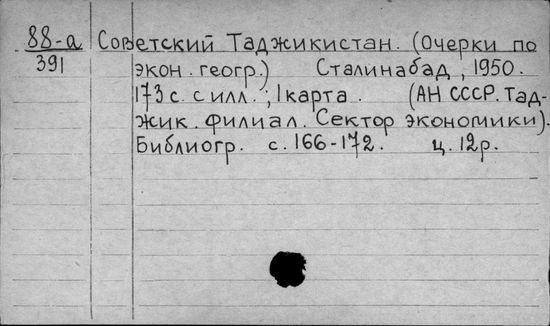 88-а Советский Таджикистан. (Очерки по
391 экон. геогр.) Сталинабад, 1950.
173 с. с илл.; 1 карта. (АН СССР. Тад-
жик. филиал. Сектор экономики).
Библиогр. с. 166-172. ц. 12 р.